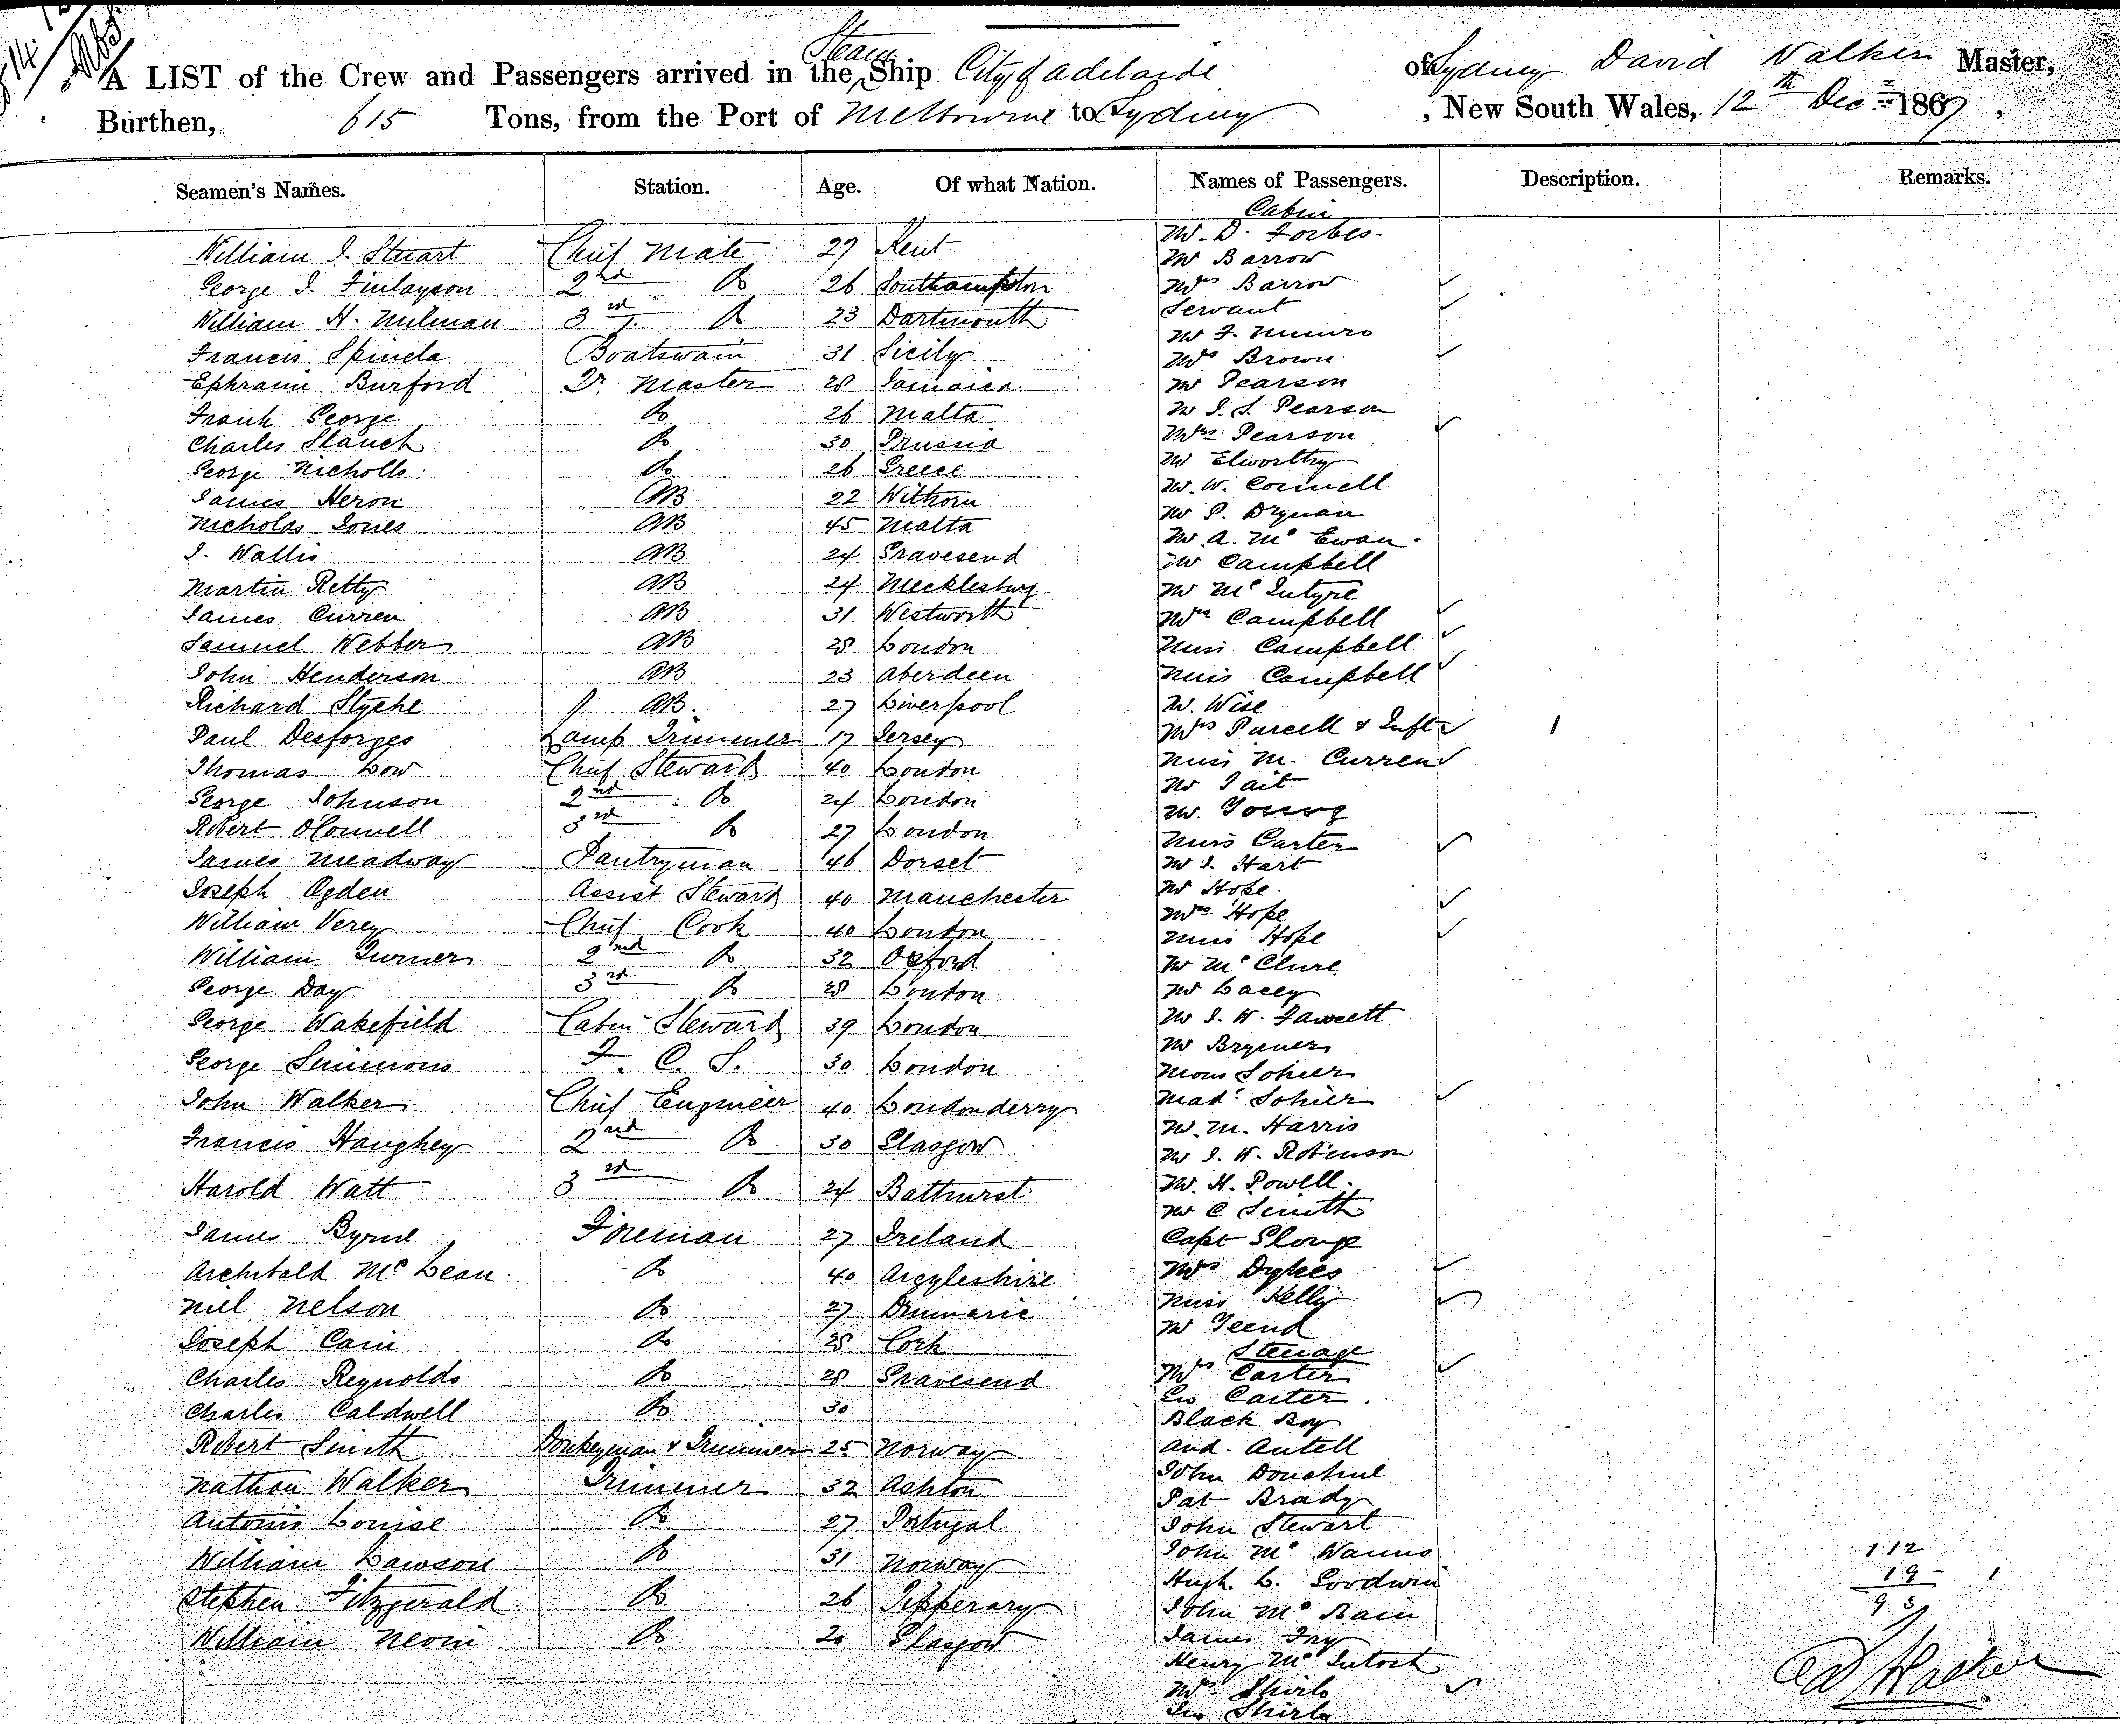 A LIST of the Crew and Passengers arrived in the Steam Ship City of Adelaide of Sydney David Walker Master,
Burthen, 615 Tons, from the Port of Melbourne to Sydney, New South Wales, 12th Dec 1867,
Seamen's Names. Station. Age. Of what Nation. Names of Passengers. Description. Remarks.
Cabin
William J. Stuart Chief Mate 27 Kent
Mr. D. Forbes
Mr Barrow
George J. Finlayson 2nd Do 26 Southampton
Mrs Barrow
William H. Milman 3rd Do 23 Dartmouth
Servant
Mr J. Munro
Francis Spinela Boatswain 31 Sicily
Mrs Brown
Ephraim Burford Qr Master 28 Jamaica
Mr Pearson
Frank George Do 26 Malta
Mr J. S. Pearson
Charles Stauch Do 30 Prussia
Mrs Pearson
George Nicholls Do 26 Greece
Mr Elworthy
James Heron AB 22 Withorn
Mr. W. Cornwell
Nicholas Jones AB 45 Malta
Mr P. Drynan
J. Wallis AB 24 Gravesend
Mr A. Mc Ewan
Mr Campbell
Martin Retty AB 24 Mecklesburg
Mr Mc Intyre
James Curren AB 31 Westworth
Mrs Campbell
Samuel Webber AB 28 London
Miss Campbell
John Henderson AB 23 Aberdeen
Miss Campbell
Richard Slyehe AB 27 Liverpool
Mr. Wise
Paul Desforges Lamp Trimmer 17 Jersey
Mrs Purcell & Inft 1
Thomas Low Chief Steward 40 London
Miss M. Curren
George Johnson 2nd Do 24 London
Mr Tait
Robert O'Connell 3rd Do 27 London
Mr. Young
Miss Carter
James Meadway Pantryman 46 Dorset
Mr J. Hart
Joseph Ogden Assist Steward 40 Manchester
Mr Hope
William Verey Chief Cook 40 London
Mrs Hope
Miss Hope
William Turner 2nd Do 32 Oxford
Mr Mc Clure
George Day 3rd Do 28 London
Mr Lacey
George Wakefield Cabin Steward 39 London
Mr J. W. Fawcett
Mr Brymer
George Simmons F. C. S. 30 London
Mons Sohier
John Walker Chief Engineer 40 Londonderry
Mad. Sohier
Mr. M. Harris
Francis Haughey 2nd Do 30 Glasgow
Mr J. W. Robinson
Harold Watt 3rd Do 24 Bathurst
Mr. H. Powell
Mr C Smith
James Byrne Foreman 27 Ireland
Capt
Archibald Mc Lean Do 40 Argyleshire
Mrs Dykes
Niel Nelson Do 27
Miss Kelly
Mr Teend
Joseph Cain Do 28 Cork
Steerage
Charles Reynolds Do 28 Gravesend
Mrs Carter
Geo Carter
Charles Caldwell Do 30
Black Boy
Robert Smith Donkeyman & Trimmer 25 Norway
And. Antell
John Donohue
Nathan Walker Trimmer 32 Ashton
Pat Brady
Antonis Louise Do 27 Portugal
John Stewart
William Lawson Do 31 Norway
John Mc Wanus 112
Hugh L. Goodwin 19 1
Stephen Fitzgerald Do 26 Tipperary
John Mc Bain 93
William Nevin Do 20 Glasgow
James Fry
Henry Mc Intosh
Mrs Shirls
Geo Shirls